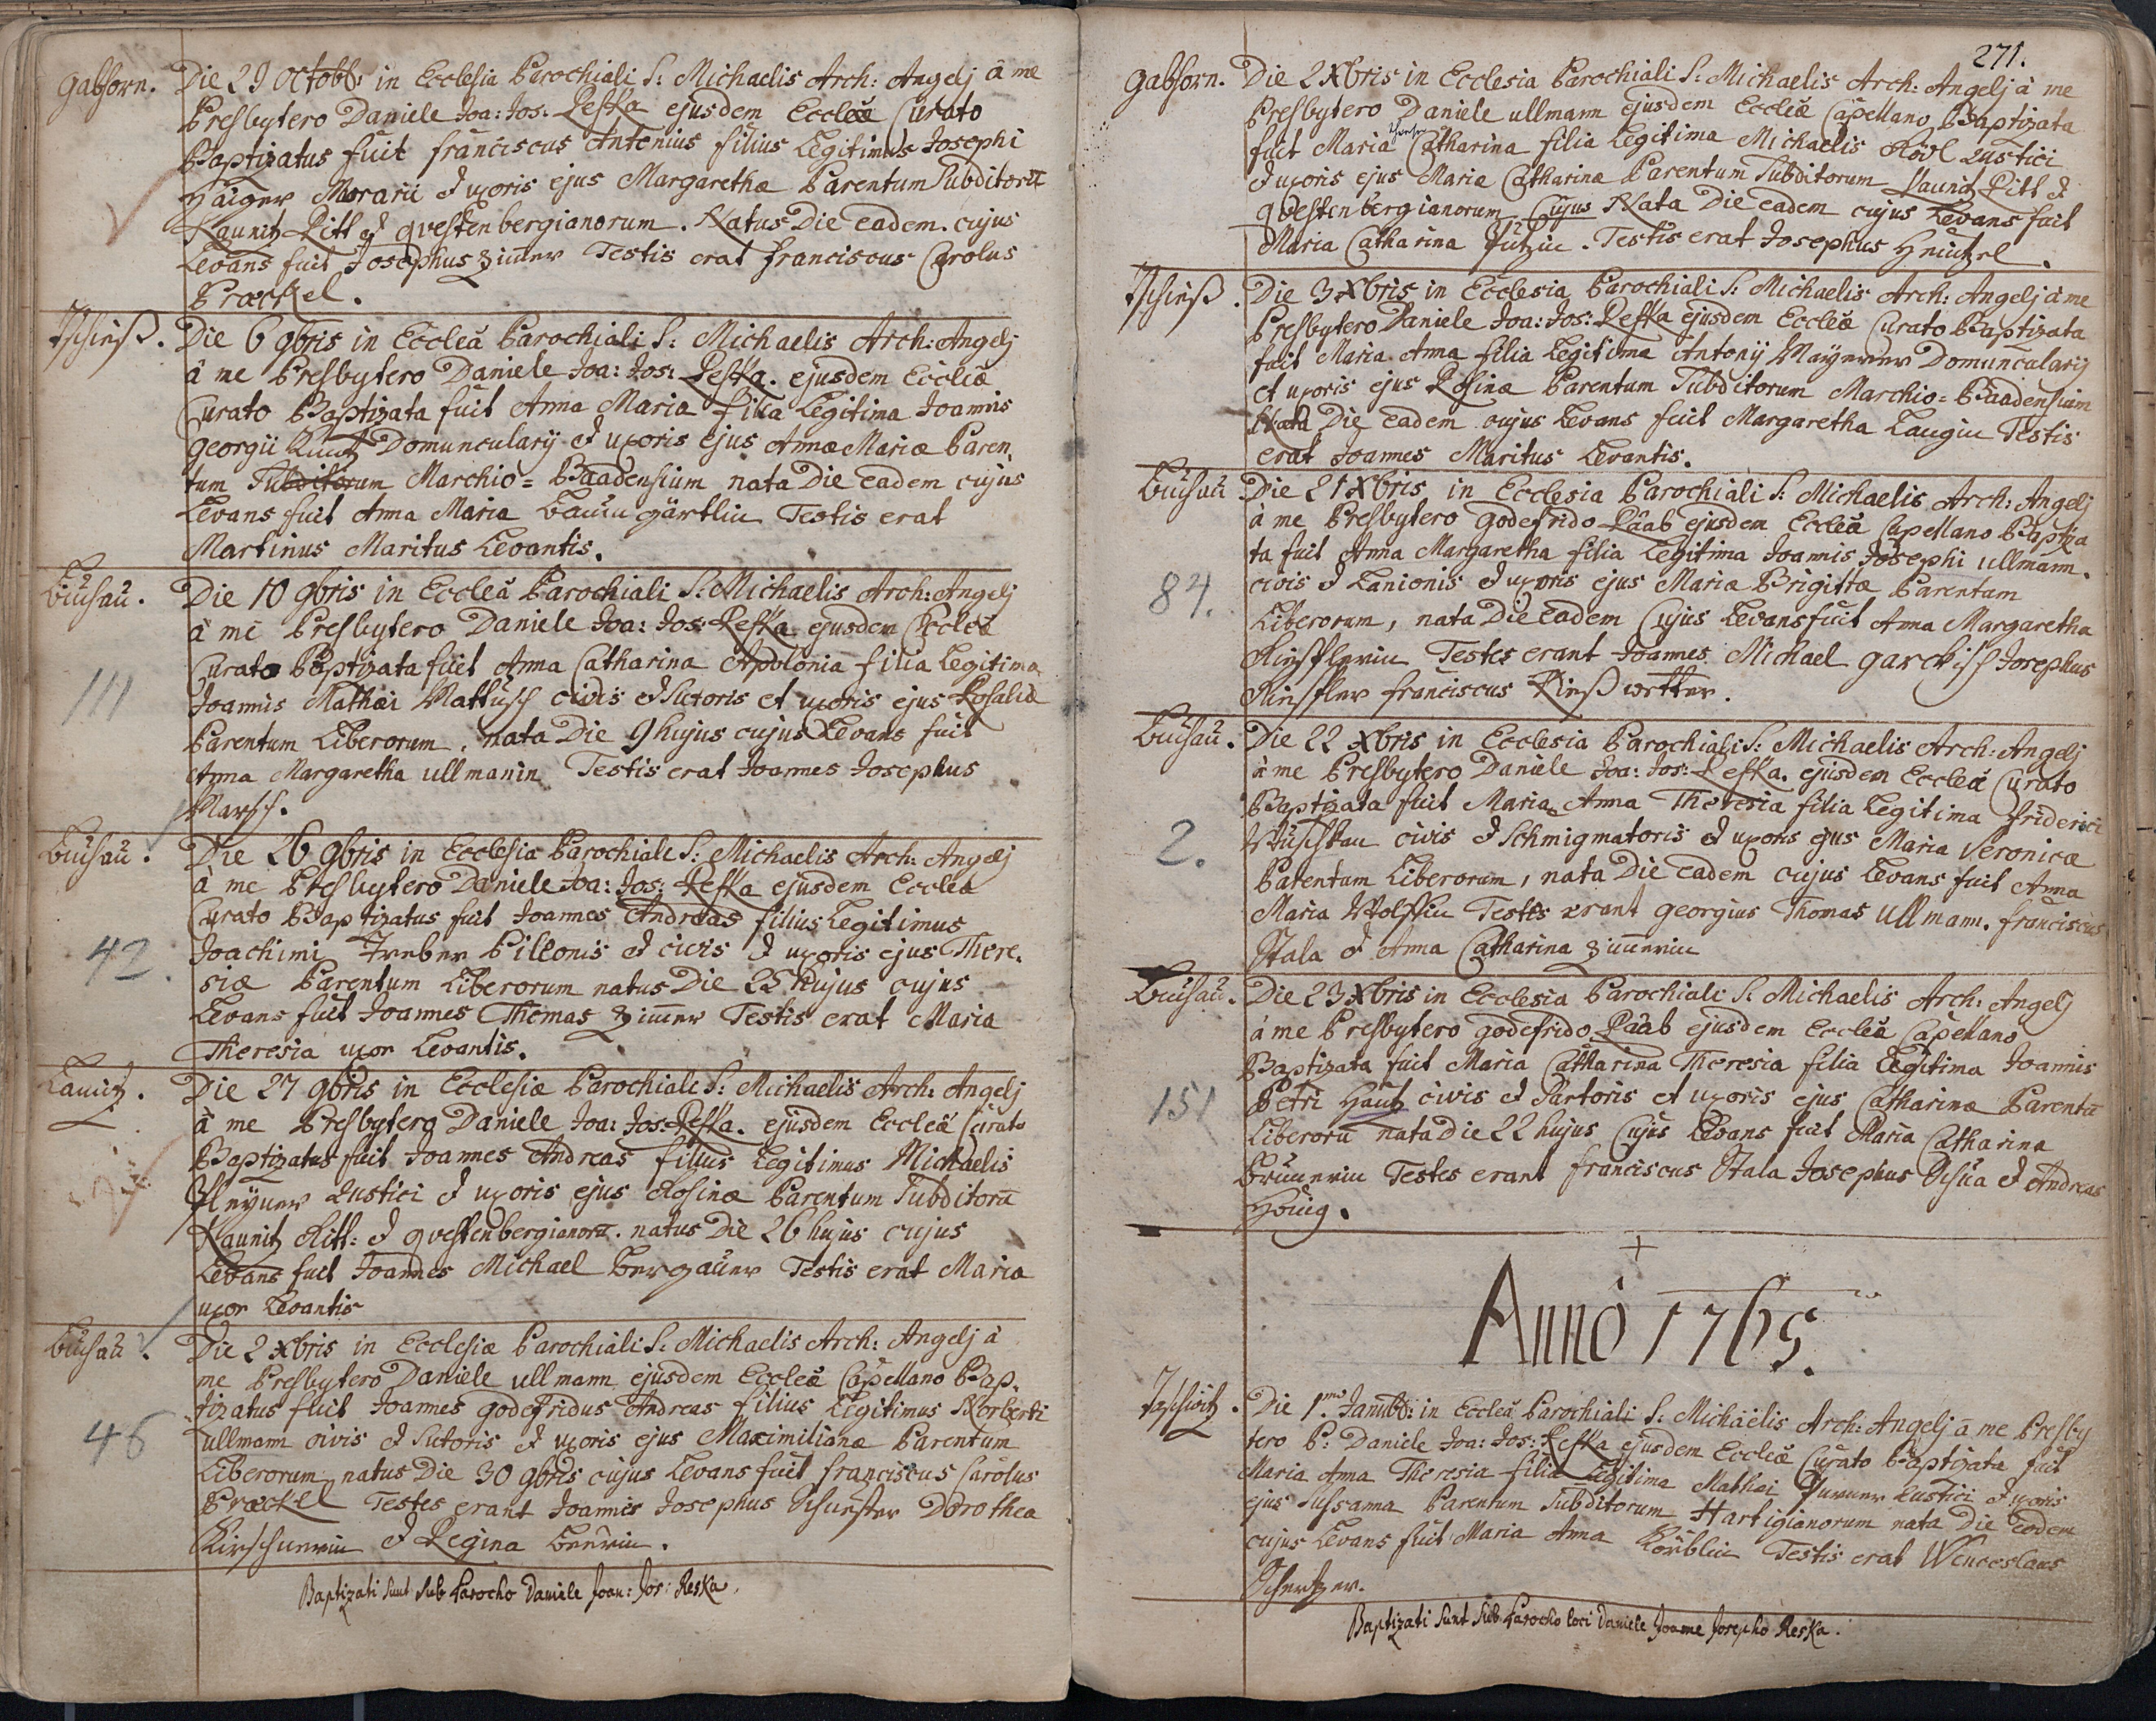 Gabhorn. Die 29 Octobr: in Ecclesia Parochiali S: Michaelis Arch: Angelj à me
Presbytero Daniele Joa: Jos: Reska ejusdem Eccleæ Curato
Baptizatus fuit Franciscus Antonius filius Legitimus Josephi
Haiger Morarii et uxoris ejus Margarethæ Parentum Subditorū
Kaunitz Ritt et questenbergianorum. Natus Die eadem. cujus
Levans fuit Josephus Zimer Testis erat Franciscus Carolus
Præckel.
Tschieß. Die 6 9bris in Eccleâ Parochiali S: Michaelis Arch: Angelj
à me Presbytero Daniele Joa: Jos: Reska. ejusdem Eccliæ
Curato Baptizata fuit Anna Maria filia Legitima Joannis
Georgii Domuncularij et uxoris ejus Annæ Mariæ Paren-
tum Subditorum Marchio= Baadensium nata Die eadem cujus
Levans fuit Anna Maria Baumgärtlin Testis erat
Martinus Maritus Levantis.
Buchau. Die 10 9bris in Eccleâ Parochiali S: Michaelis Arch: Angelj
à me Presbytero Daniele Joa: Jos: Reska ejusdem Eccleæ
Curato Baptizata fuit Anna Catharina Apolonia filia Legitima
111 Joannis Mathæi Mattusch civis et Sutoris et uxoris ejus Rosaliæ
Parentum Liberorum. nata Die 9 hujus cujus Levans fuit
Anna Margaretha ullmanin Testis erat Joannes Josephus
Marsch.
Buchau. Die 26 9bris in Ecclesia Parochiali S: Michaelis Arch: Angelj
à me Presbytero Daniele Joa: Jos: Reska ejusdem Eccleæ
Curato Baptizatus fuit Joannes Andreas filius Legitimus
42. Joachimi Treber Pileonis et civis et uxoris ejus There-
siæ Parentum Liberorum natus Die 25 hujus cujus
Levans fuit Joannes Thomas Zimer Testis erat Maria
Theresia uxor Levantis.
Lautz. Die 27 9bris in Ecclesiæ Parochiali S: Michaelis Arch: Angelj
à me Presbytero Daniele Joa: Jos: Reska. ejusdem Eccleæ Curato
Baptizatus fuit Joannes Andreas filius Legitimus Michaelis
Rustici et uxoris ejus Rosinæ Parentum Subditorū
Kaunitz Ritt: et questenbergianorū. natus Die 26 hujus cujus
Levans fuit Joannes Michael Bergauer Testis erat Maria
uxor Levantis
Buchau. Die 2 Xbris in Ecclesiæ Parochiali S: Michaelis Arch: Angelj à
me Presbytero Daniele ullmann ejusdem Eccleæ Capellano Bap-
tizatus fuit Joannes Godefridus Andreas filius Legitimus Norberti
46 ullmann civis et Sutoris et uxoris ejus Maximilianæ Parentum
Liberorum natus Die 30 9bris cujus Levans fuit Franciscus Carolus
Præckel Testes erant Joannis Josephus Schuster Dorothea
Kirschnerin et Regina
Baptizati sunt sub Parocho Daniele Joan: Jos: Reska.
271.
Gabhorn. Die 2 Xbris in Ecclesia Parochiali S: Michaelis Arch: Angelj à me
Presbytero Daniele ullmann ejusdem Eccleæ Capellano Baptizata
fuit Maria Catharina filia Legitima Michaelis Rödl Rustici
et uxoris ejus Mariæ Catharinæ Parentum Subditorum Kaunitz Ritt et
questenbergianorum. Cujus Nata Die eadem cujus Levans fuit
Maria Catharina Testis erat Josephus
Tschieß. Die 3 Xbris in Ecclesia Parochiali S: Michaelis Arch: Angelj à me
Presbytero Daniele Joa: Jos: Reska ejusdem Eccleæ Curato Baptizata
fuit Maria Anna filia Legitima Antonij Domuncularij
et uxoris ejus Rosinæ Parentum Subditorum Marchio= Baadensium
Nata Die eadem cujus Levans fuit Margaretha Langin Testis
erat Joannes Maritus Levantis.
Buchau. Die 21 Xbris in Ecclesia Parochiali S: Michaelis Arch: Angelj
à me Presbytero Godefrido Raab ejusdem Eccleæ Capellano Baptiza
ta fuit Anna Margaretha filia Legitima Joannis Josephi ullmann.
84. civis et Lanionis et uxoris ejus Mariæ Brigittæ Parentum
Liberorum, nata Die Eadem Cujus Levans fuit Anna Margaretha
Testes erant Joannes Michael Garckisch Josephus
Franciscus
Buchau. Die 22 Xbris in Ecclesia Parochiali S: Michaelis Arch: Angelj
à me Presbytero Daniele Joa: Jos: Reska. ejusdem Eccleæ Curato
Baptizata fuit Maria Anna Theresia filia Legitima Friderici
2. civis et Schmigmatoris et uxoris ejus Maria Veronicæ
Parentum Liberorum, nata Die eadem cujus Levans fuit Anna
Maria Wolffin Testes erant Georgius Thomas ullmann. Franciscus
Stala et Anna Catharina Zimerin
Buchau. Die 23 Xbris in Ecclesia Parochiali S: Michaelis Arch: Angelj
à me Presbytero Godefrido Raab ejusdem Eccleæ Capellano
Baptizata fuit Maria Catharina Theresia filia Legitima Joannis
151 Petri Hautz civis et Sartoris et uxoris ejus Catharinæ Parentū
Liberorū nata Die 22 hujus Cujus Levans fuit Maria Catharina
Testes erant Franciscus Stala Josephus et Andreas
Hönig.
Anno 1765.
Die 1.mo Januar: in Eccleâ Parochiali S: Michäelis Arch: Angelj à me Presby
tero P: Daniele Joa: Jos: Reska ejusdem Eccleiæ Curato Baptizata fuit
Maria Anna Theresia filia Legitima Mathæi Rustici et uxoris
ejus Sussanna Parentum Subditorum Hartigianorum nata Die Eodem
cujus Levans fuit Maria Anna Testis erat Wenceslaus
Baptizati sunt sub Parocho loci Daniele Joanne Josepho Reska.